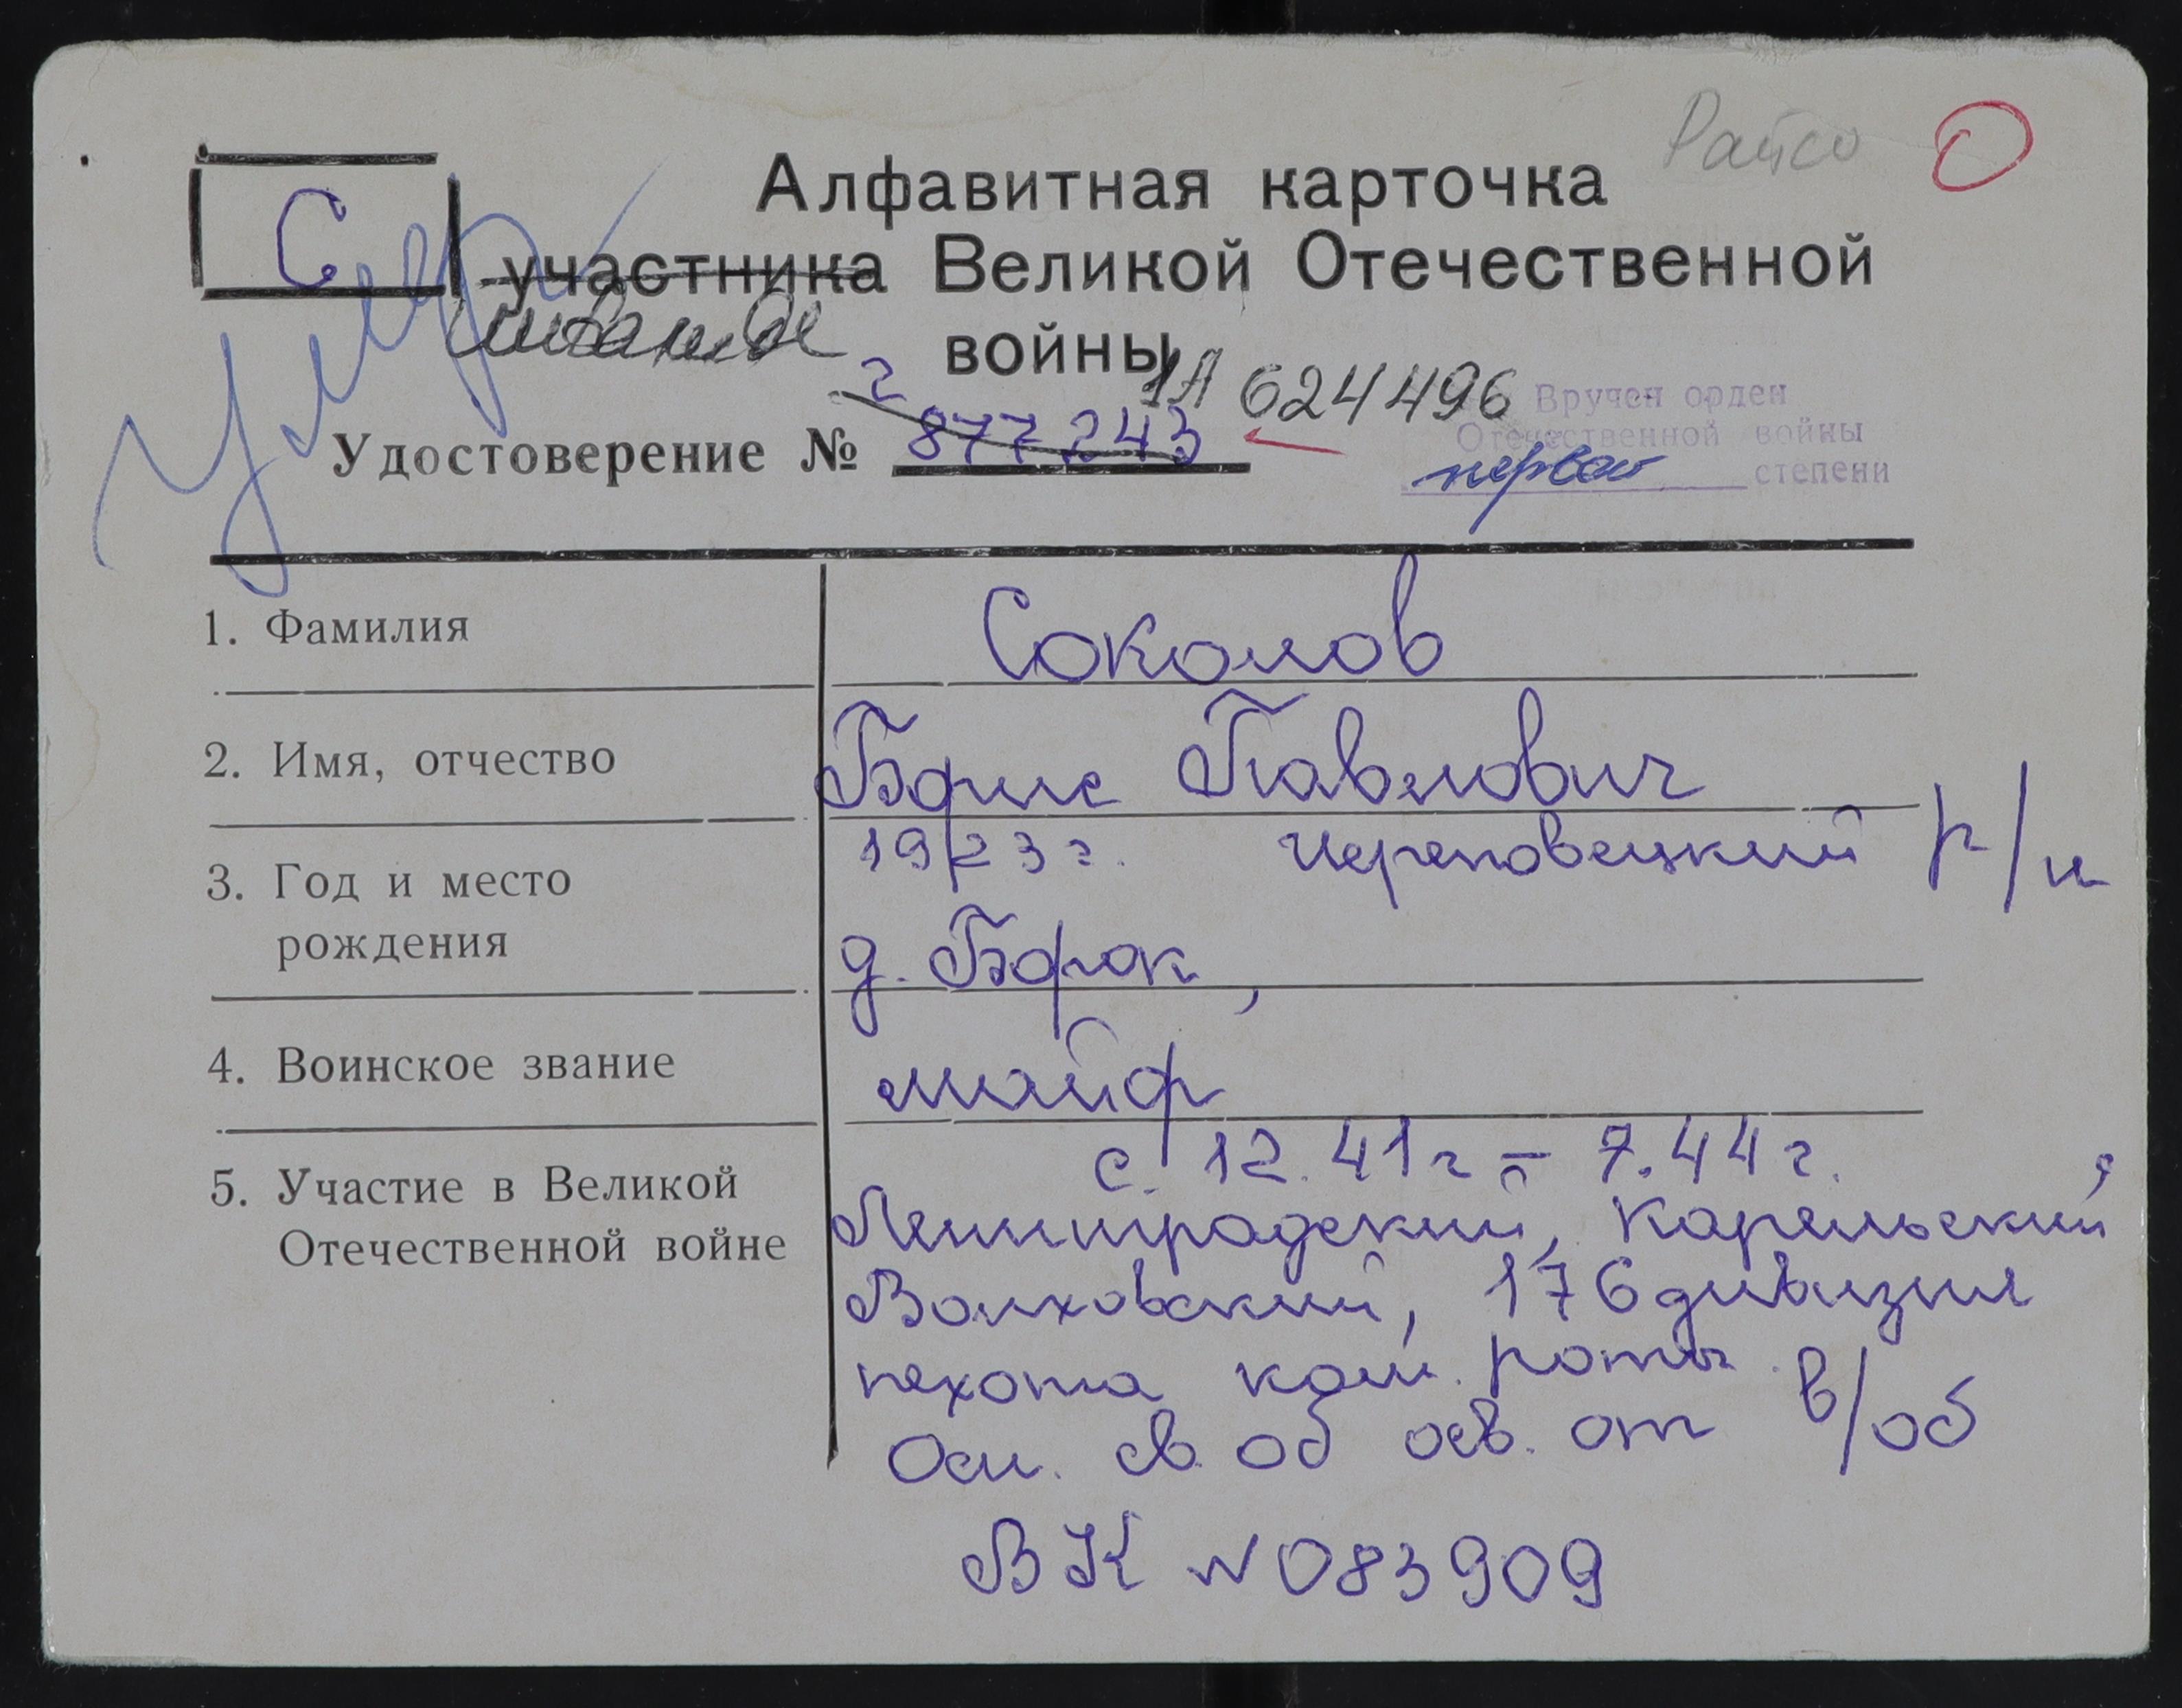 Райсо
Алфавитная карточка
С участника Великой Отечественной
инвалида войны
умер
1А 624496
Вручен орден
Отечественной войны
первой степени
Удостоверение № г 877243
1. Фамилия Соколов
2. Имя, отчество Борис Павлович
3. Год и место рождения 1923 г. Череповецкий р/н
д. Борок,
4. Воинское звание майор
5. Участие в Великой Отечественной войне с. 12.41 г – 7.44 г.
Ленинградский, Карельский,
Волховский, 176 дивизия
пехота ком. роты.
Осн. св. об осв. от в/об
ВК № 083909